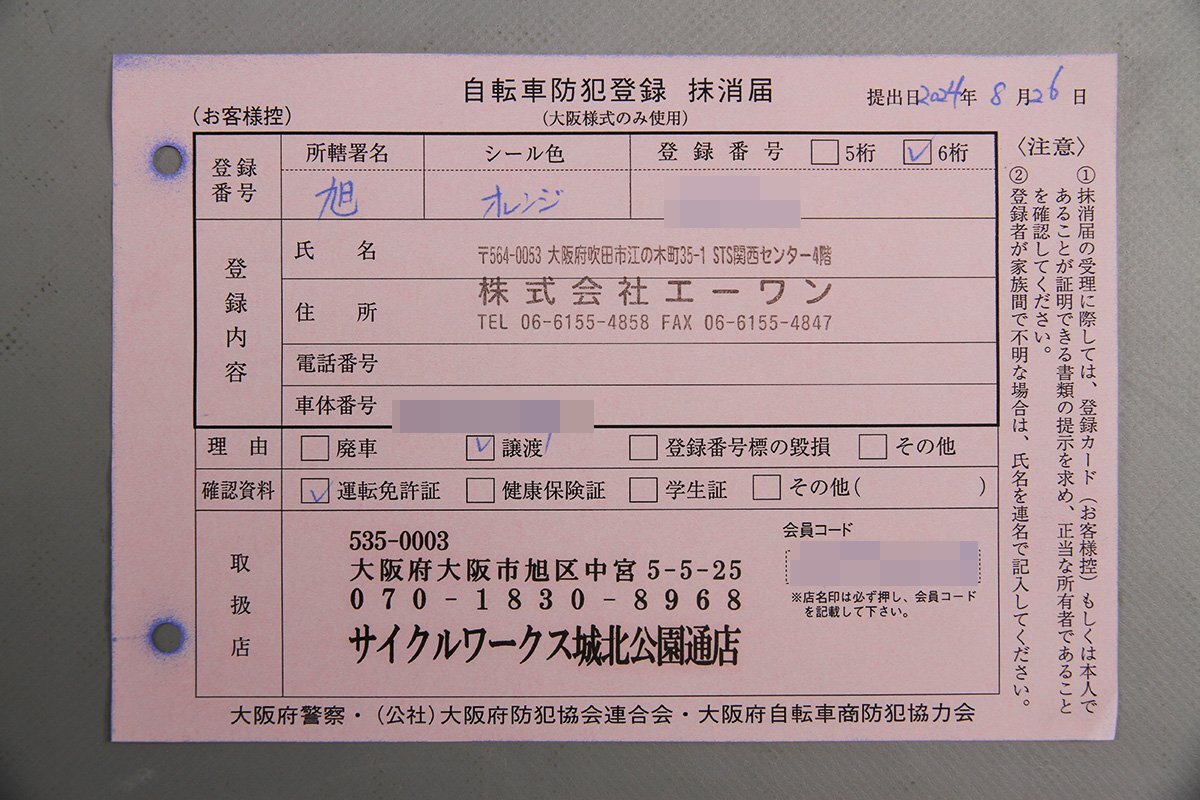 自転車防犯登録 抹消届
(大阪様式のみ使用)
提出日2024年 8 月26 日
(お客様控)
登録番号
所轄署名
シール色
登録番号 □5桁 ☑6桁
旭
オレンジ
登録内容
氏 名
住 所
〒564-0053 大阪府吹田市江の木町35-1 STS関西センター4階
株式会社エーワン
TEL 06-6155-4858 FAX 06-6155-4847
電話番号
車体番号
理 由 □廃車 ☑譲渡 □登録番号標の毀損 □その他
確認資料 ☑運転免許証 □健康保険証 □学生証 □その他( )
取扱店
535-0003
大阪府大阪市旭区中宮5-5-25
070-1830-8968
サイクルワークス城北公園通店
会員コード
※店名印は必ず押し、会員コード
を記載して下さい。
大阪府警察・(公社)大阪府防犯協会連合会・大阪府自転車商防犯協力会
〈注意〉
①抹消届の受理に際しては、登録カード(お客様控)もしくは本人で
あることが証明できる書類の提示を求め、正当な所有者であること
を確認してください。
②登録者が家族間で不明な場合は、氏名を連名で記入してください。